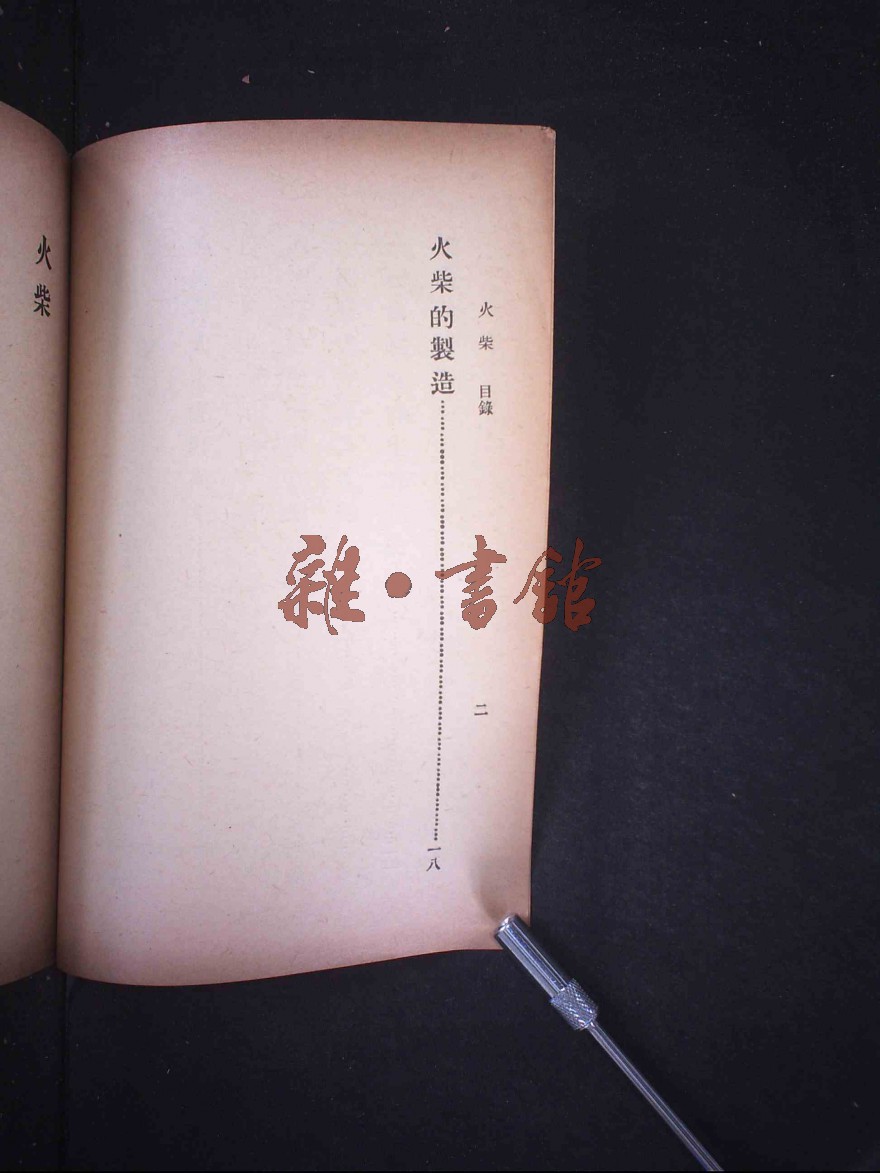 火柴 目錄 二
火柴的製造……………………一八
火柴
雜·書館